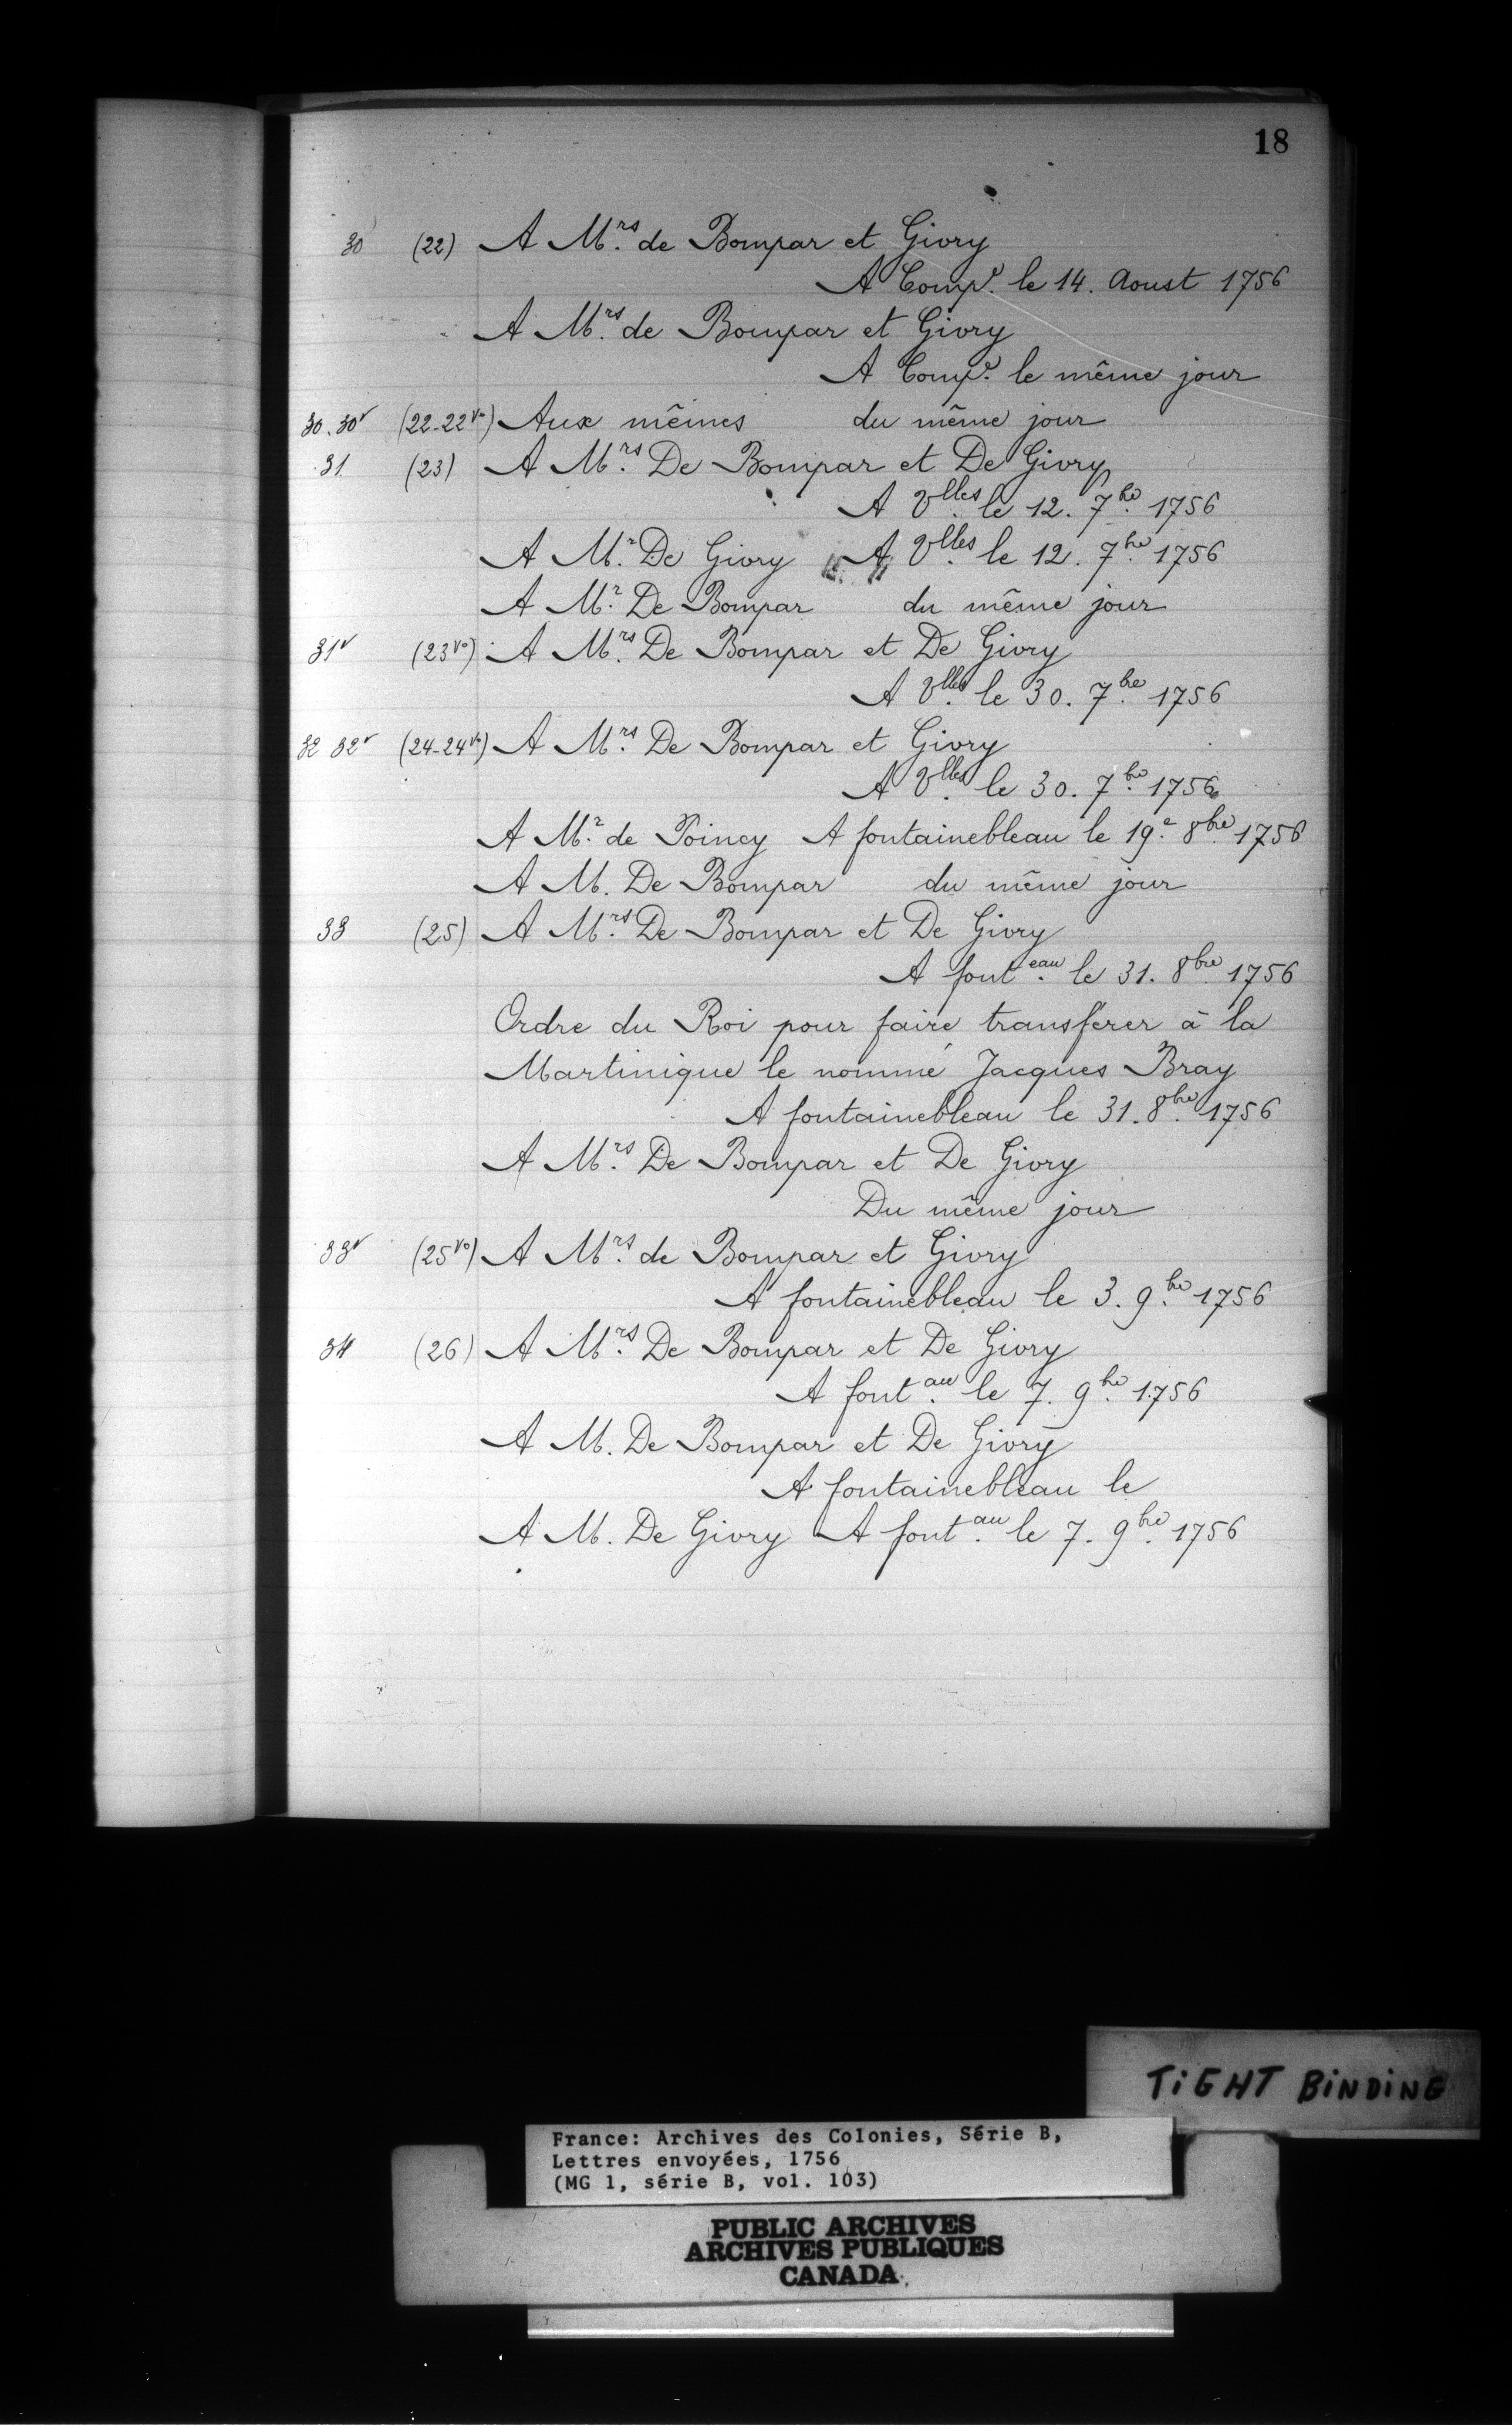 18
30 (22) A Mrs. de Bompar et Givry
A Comp.e le 14. Aoust 1756
A Mrs. de Bompar et Givry
A Comp.e le même jour
30.30v (22-22vo) Aux mêmes du même jour
31 (23) A Mrs. De Bompar et De Givry
A Vlles. le 12. 7bre. 1756
A Mr. De Givry A Vlles. le 12. 7bre. 1756
A Mr. De Bompar du même jour
31v (23vo) A Mrs. De Bompar et De Givry
A Vlles. le 30. 7bre. 1756
32 32v (24-24vo) A Mrs. De Bompar et Givry
A Vlles. le 30. 7bre. 1756
A Mr. de Poincy A fontainebleau le 19e. 8bre. 1756
A M. De Bompar du même jour
33 (25) A Mrs. De Bompar et De Givry
A fonteau. le 31. 8bre. 1756
Ordre du Roi pour faire transférer à la
Martinique le nommé Jacques Bray
A fontainebleau le 31. 8bre. 1756
A Mrs. De Bompar et De Givry
Du même jour
33v (25vo) A Mrs. de Bompar et Givry
A fontainebleau le 3. 9bre. 1756
34 (26) A Mrs. De Bompar et De Givry
A fontau. le 7. 9bre. 1756
A M. De Bompar et De Givry
A fontainebleau le
A M. De Givry A fontau. le 7. 9bre. 1756
TIGHT BINDING
France: Archives des Colonies, Série B,
Lettres envoyées, 1756
(MG 1, série B, vol. 103)
PUBLIC ARCHIVES
ARCHIVES PUBLIQUES
CANADA